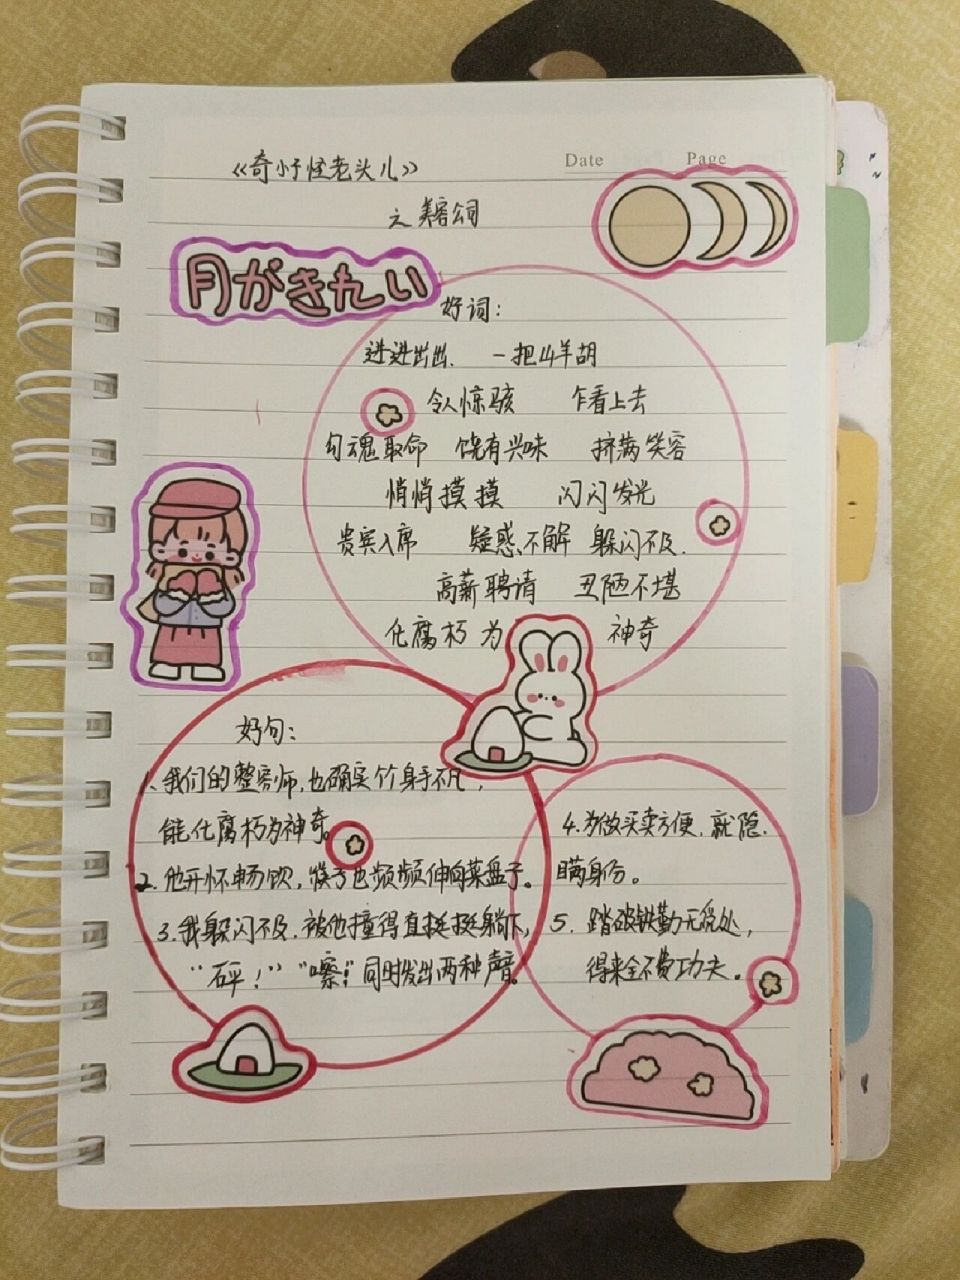 《奇奇怪怪老头儿》
Date Page
之美容公司
月がきれい
好词：
进进出出. 一把山羊胡
令人惊骇 乍看上去
勾魂取命 饶有兴味 挤满笑容
悄悄摸摸 闪闪发光
贵宾入席 疑惑不解 躲闪不及.
高薪聘请 丑陋不堪
化腐朽为 神奇
好句：
1. 我们的整容师,也确实个身手不凡，
能化腐朽为神奇。
2. 他开怀畅饮，筷子也频频伸向菜盘子。
3. 我躲闪不及.被他撞得直挺挺躺下，
“砰！”“嚓！”同时发出两种声音。
4. 为做买卖方便，就隐.
瞒身份。
5. 踏破铁鞋无觅处，
得来全不费功夫。